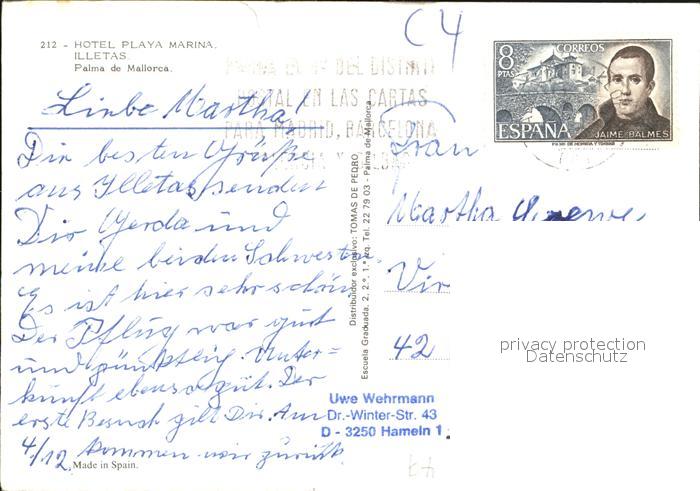 212 - HOTEL PLAYA MARINA.
ILLETAS.
Palma de Mallorca.
C4
8
PTAS
CORREOS
ESPAÑA
JAIME BALMES
DEL DISTRITO
POSTAL EN LAS CARTAS
PARA MADRID, BARCELONA
Liebe Martha!
Die besten Grüße
aus Illetas senden
Dir Gerda und
meine beiden Schwestern.
Es ist hier sehr schön.
Der Pflug war gut
und pünktlig. Unter=
kunft ebenso gut. Der
erste Besuch gilt Dir. Am
4/12. kommen wir zurück.
Made in Spain.
Distribuidor exclusivo: TOMAS DE PEDRO
Escuela Graduada, 2, 2.º, 1.ª Izq. Tel. 22 79 03 - Palma de Mallorca
Frau
Martha
Vir
42
privacy protection
Datenschutz
Uwe Wehrmann
Dr.-Winter-Str. 43
D - 3250 Hameln 1